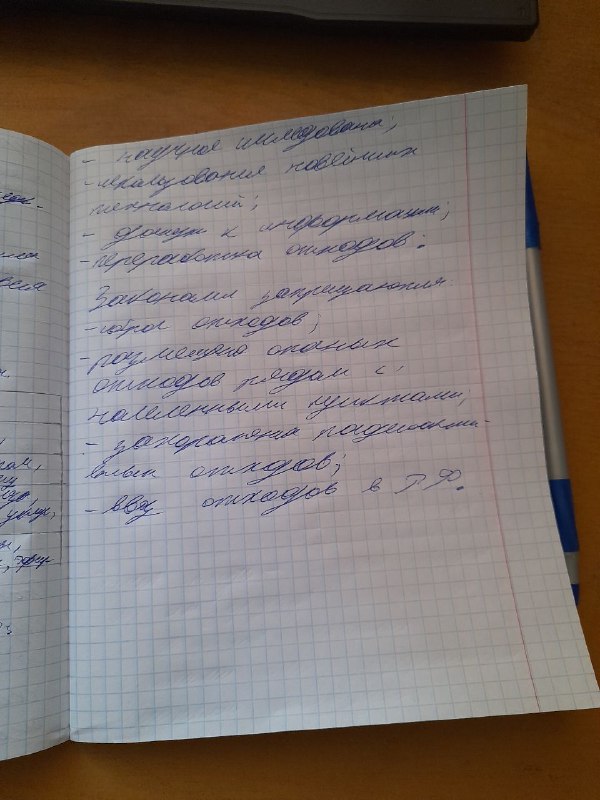 - научное исследование;
- использования новейших
технологий;
- доступ к информации;
- переработка отходов.
Законами запрещаются:
- сброс отходов;
- размещение опасных
отходов рядом с
населёнными пунктами;
- захоронения радиоакти-
вных отходов;
- ввоз отходов в РФ.